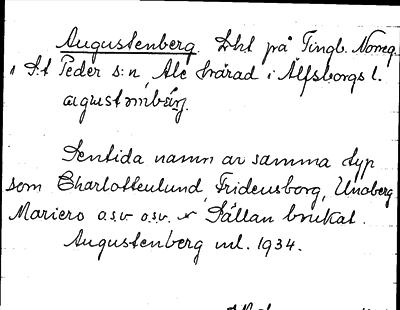 Augustenberg. Lht på Tingb. Norreg.
i S:t Peder s:n, Ale härad i Älfsborgs l.
agustmbärg.
Sentida namn av samma typ
som Charlottenlund, Fridensborg, Unaberg
Mariero o.s.v. o.s.v. Sällan brukat.
Augustenberg ml. 1934.